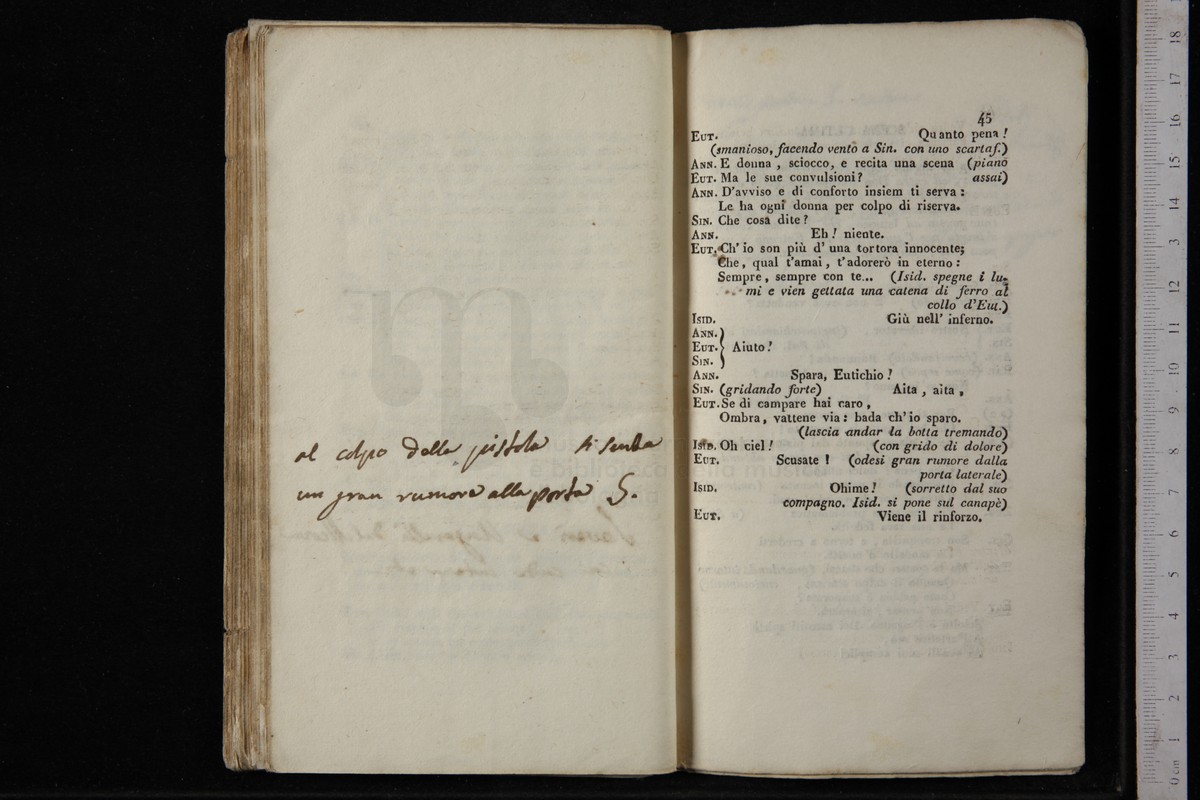 al colpo della pistola si senta
un gran rumore alla porta S.
45
EUT. Quanto pena!
(smanioso, facendo vento a Sin. con uno scartaf.)
ANN. E donna, sciocco, e recita una scena (piano
EUT. Ma le sue convulsioni? assai)
ANN. D'avviso e di conforto insiem ti serva:
Le ha ogni donna per colpo di riserva.
SIN. Che cosa dite?
ANN. Eh! niente.
EUT. Ch' io son più d' una tortora innocente;
Che, qual t'amai, t'adorerò in eterno:
Sempre, sempre con te... (Isid. spegne i lu-
mi e vien gettata una catena di ferro al
collo d'Eut.)
ISID. Giù nell' inferno.
ANN. }
EUT. } Aiuto!
SIN. }
ANN. Spara, Eutichio!
SIN. (gridando forte) Aita, aita,
EUT. Se di campare hai caro,
Ombra, vattene via: bada ch'io sparo.
(lascia andar la botta tremando)
ISID. Oh ciel! (con grido di dolore)
EUT. Scusate! (odesi gran rumore dalla
porta laterale)
ISID. Ohime! (sorretto dal suo
compagno. Isid. si pone sul canapè)
EUT. Viene il rinforzo.
0 cm 1 2 3 4 5 6 7 8 9 10 11 12 13 14 15 16 17 18